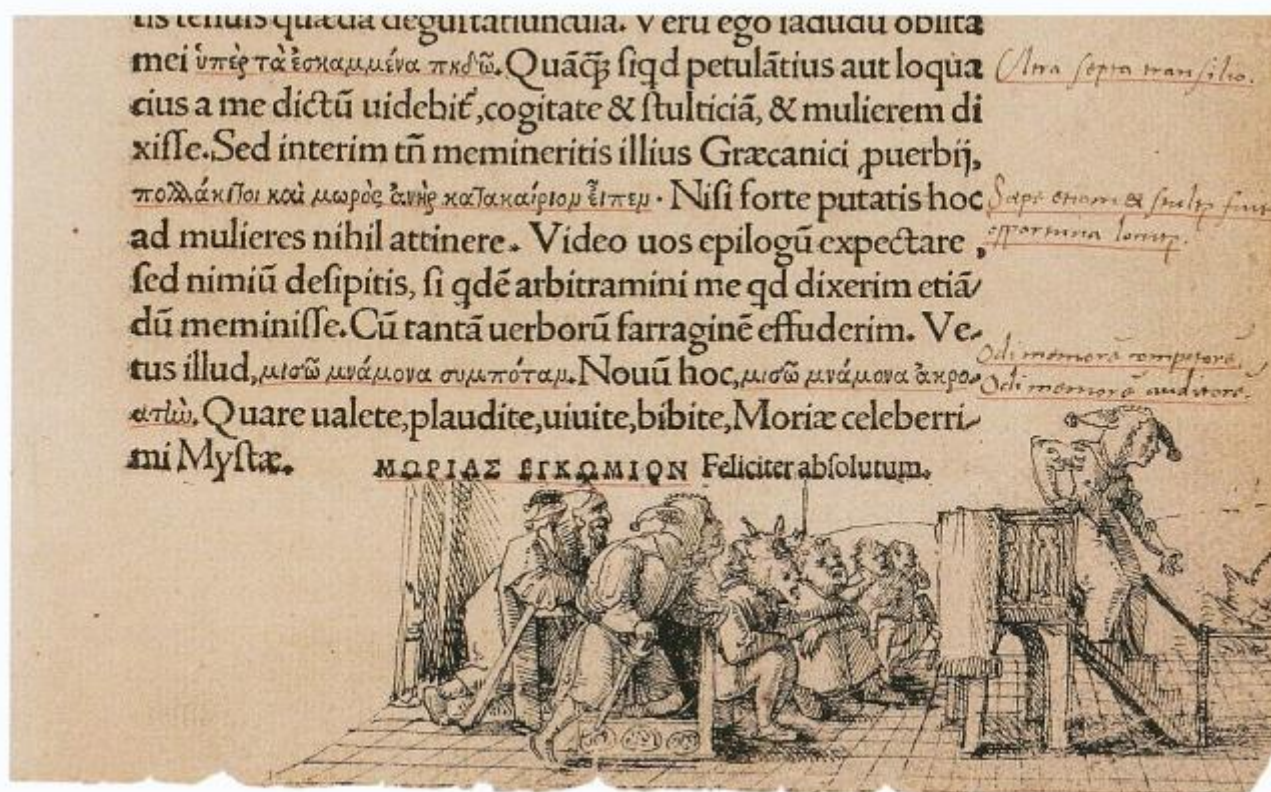 tis tenuis quædã deguſtatiuncula. Verũ ego iãdudũ oblita
mei ὑπὲρ τὰ ἐσκαμμένα πηδῶ. Quãꝗ̈ ſiqd petulãtius aut loqua
cius a me dictũ uidebit̃, cogitate & ſtulticiã, & mulierem di
xiſſe. Sed interim tñ memineritis illius Græcanici ꝓuerbij,
πολλάκι τοι καὶ μωρὸς ἀνὴρ κατακαίριον εἶπεν. Niſi forte putatis hoc
ad mulieres nihil attinere. Video uos epilogũ expectare,
ſed nimiũ deſipitis, ſi qdẽ arbitramini me qd dixerim etiã/
dũ meminiſſe. Cũ tantã uerborũ farraginẽ effuderim. Ve-
tus illud, μισῶ μνάμονα συμπόταν. Nouũ hoc, μισῶ μνάμονα ἀκρο-
ατὴν. Quare ualete, plaudite, uiuite, bibite, Moriæ celeberri-
mi Myſtæ.
ΜΩΡΙΑΣ ΕΓΚΩΜΙΟΝ Feliciter abſolutum.
Ultra ſepta tranſilio.
Sæpe etiam & ſtultꝰ fuit
opportuna locutꝰ.
Odi memorẽ compotorẽ.
Odi memorẽ auditorẽ.